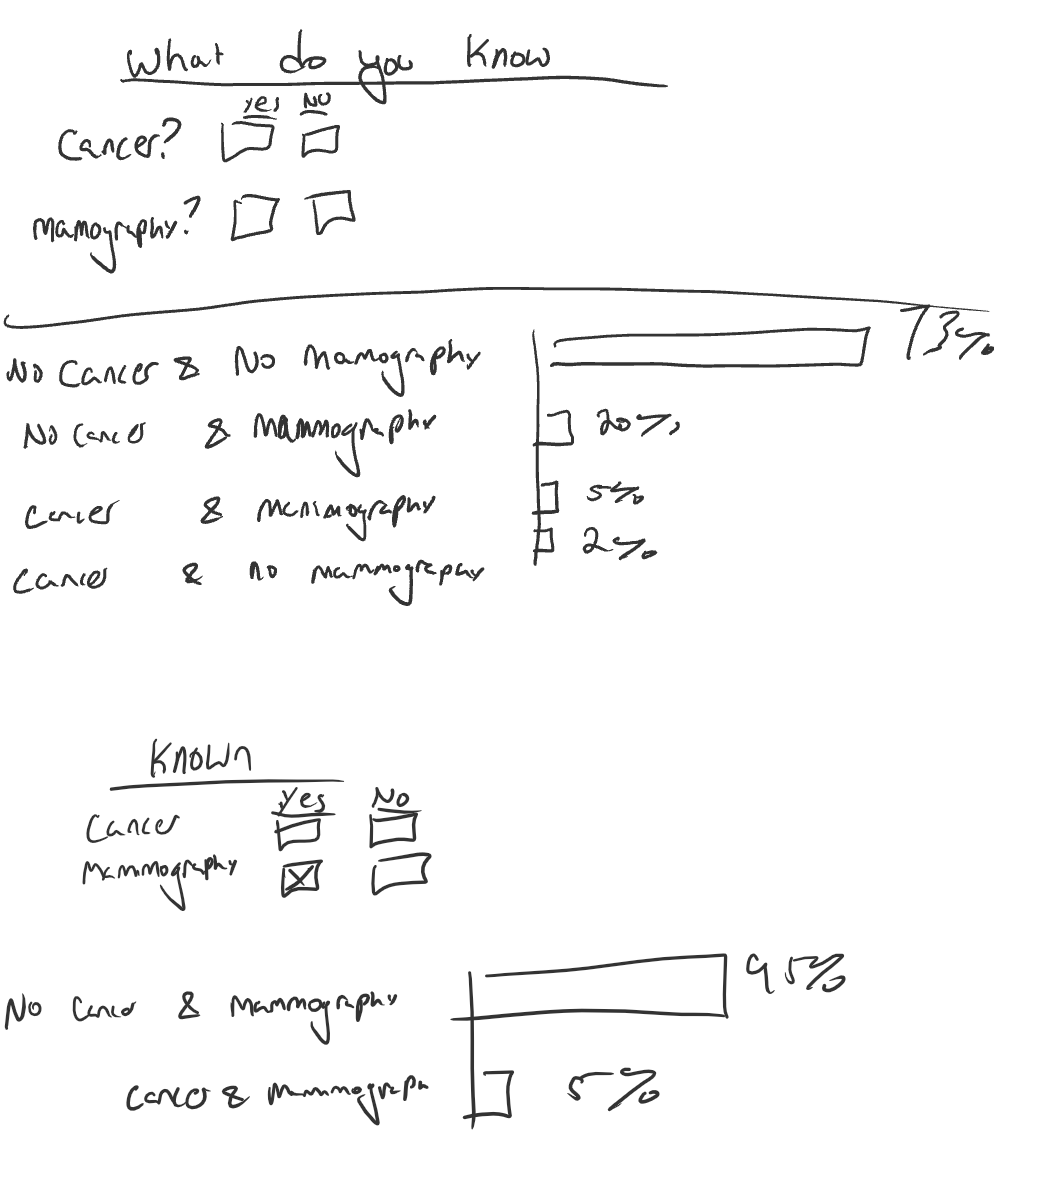 What do you know
Yes No
Cancer?
Mamography?
No Cancer & No Mamography 73%
No Cancer & Mammography 20%
Cancer & Mammography 5%
Cancer & no mammography 2%
Known
Yes No
Cancer
Mammography
No Cancer & Mammography 95%
Cancer & Mammograph 5%